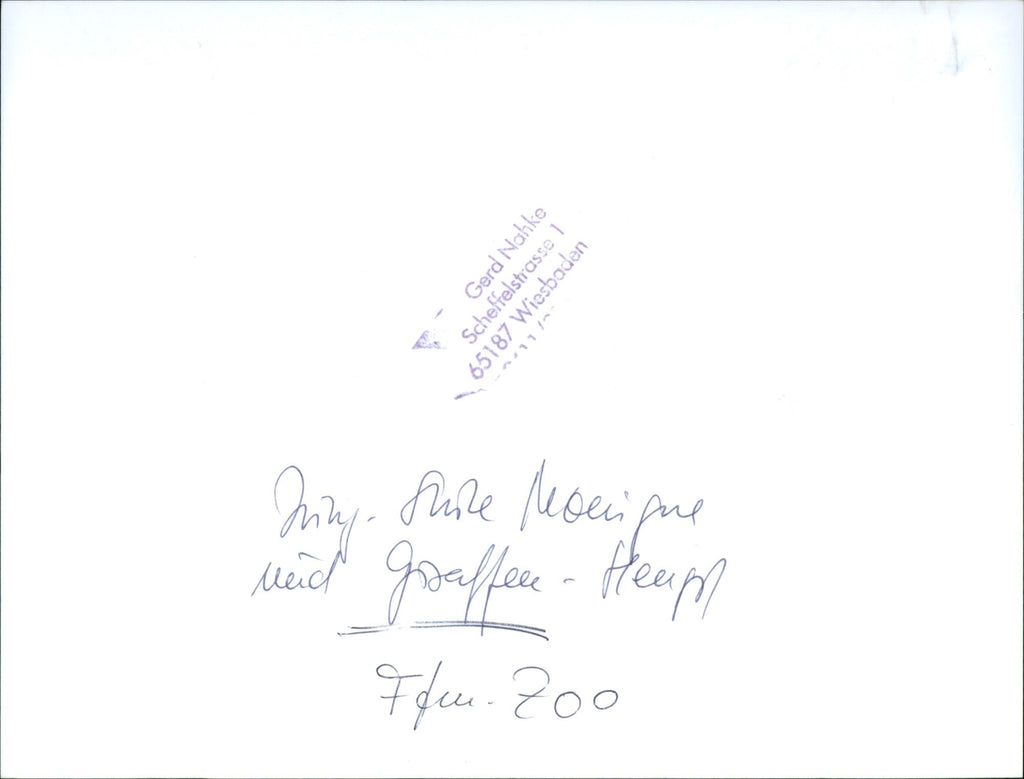 Gerd Nahke
Scheffelstrasse 1
65187 Wiesbaden
Jung-Stute Monique
und Giraffen-Hengst
Ffm-Zoo